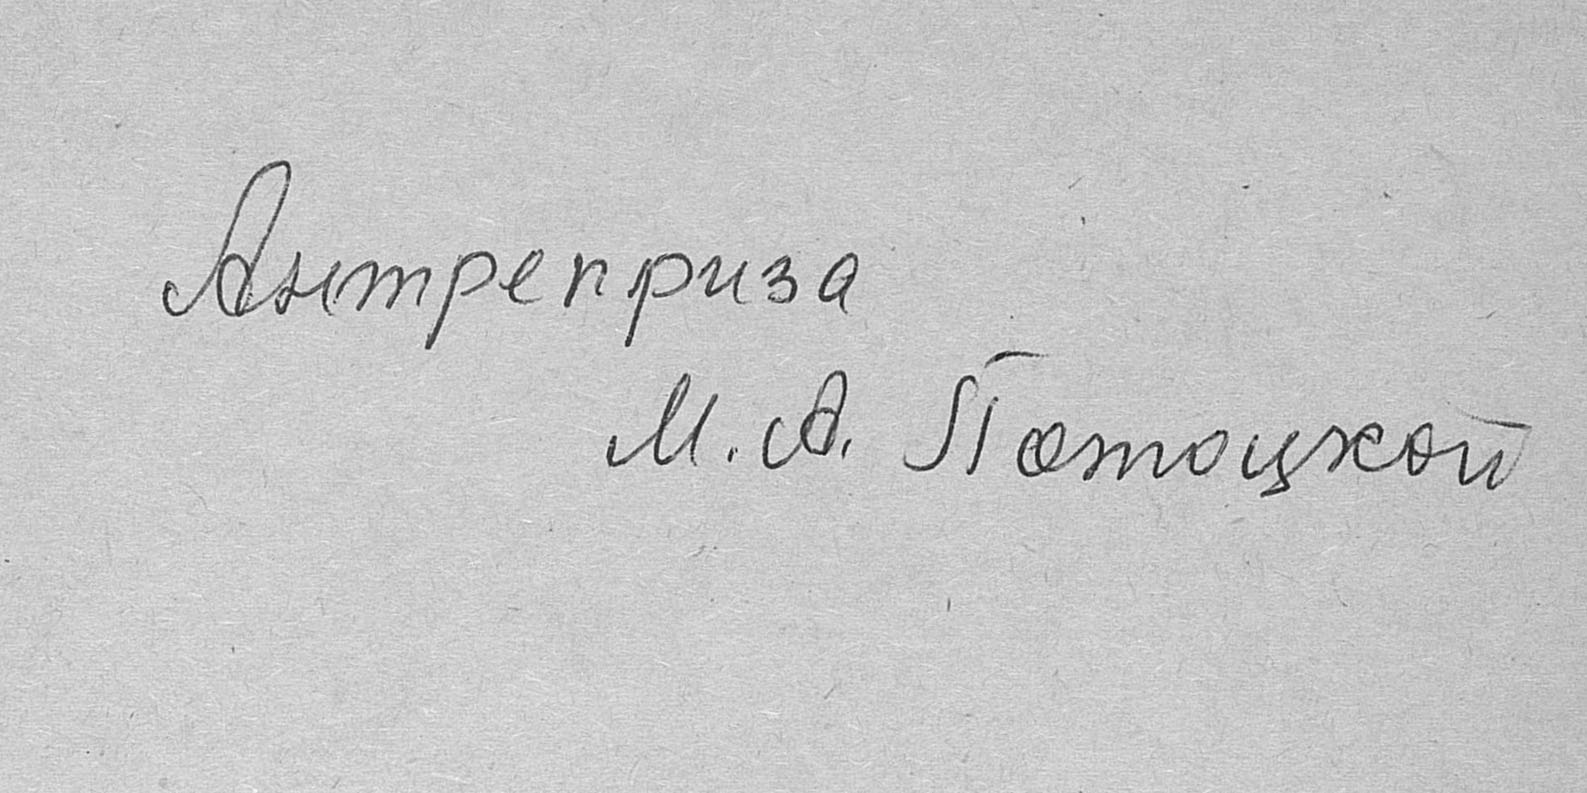 Антреприза
М. А. Потоцкой